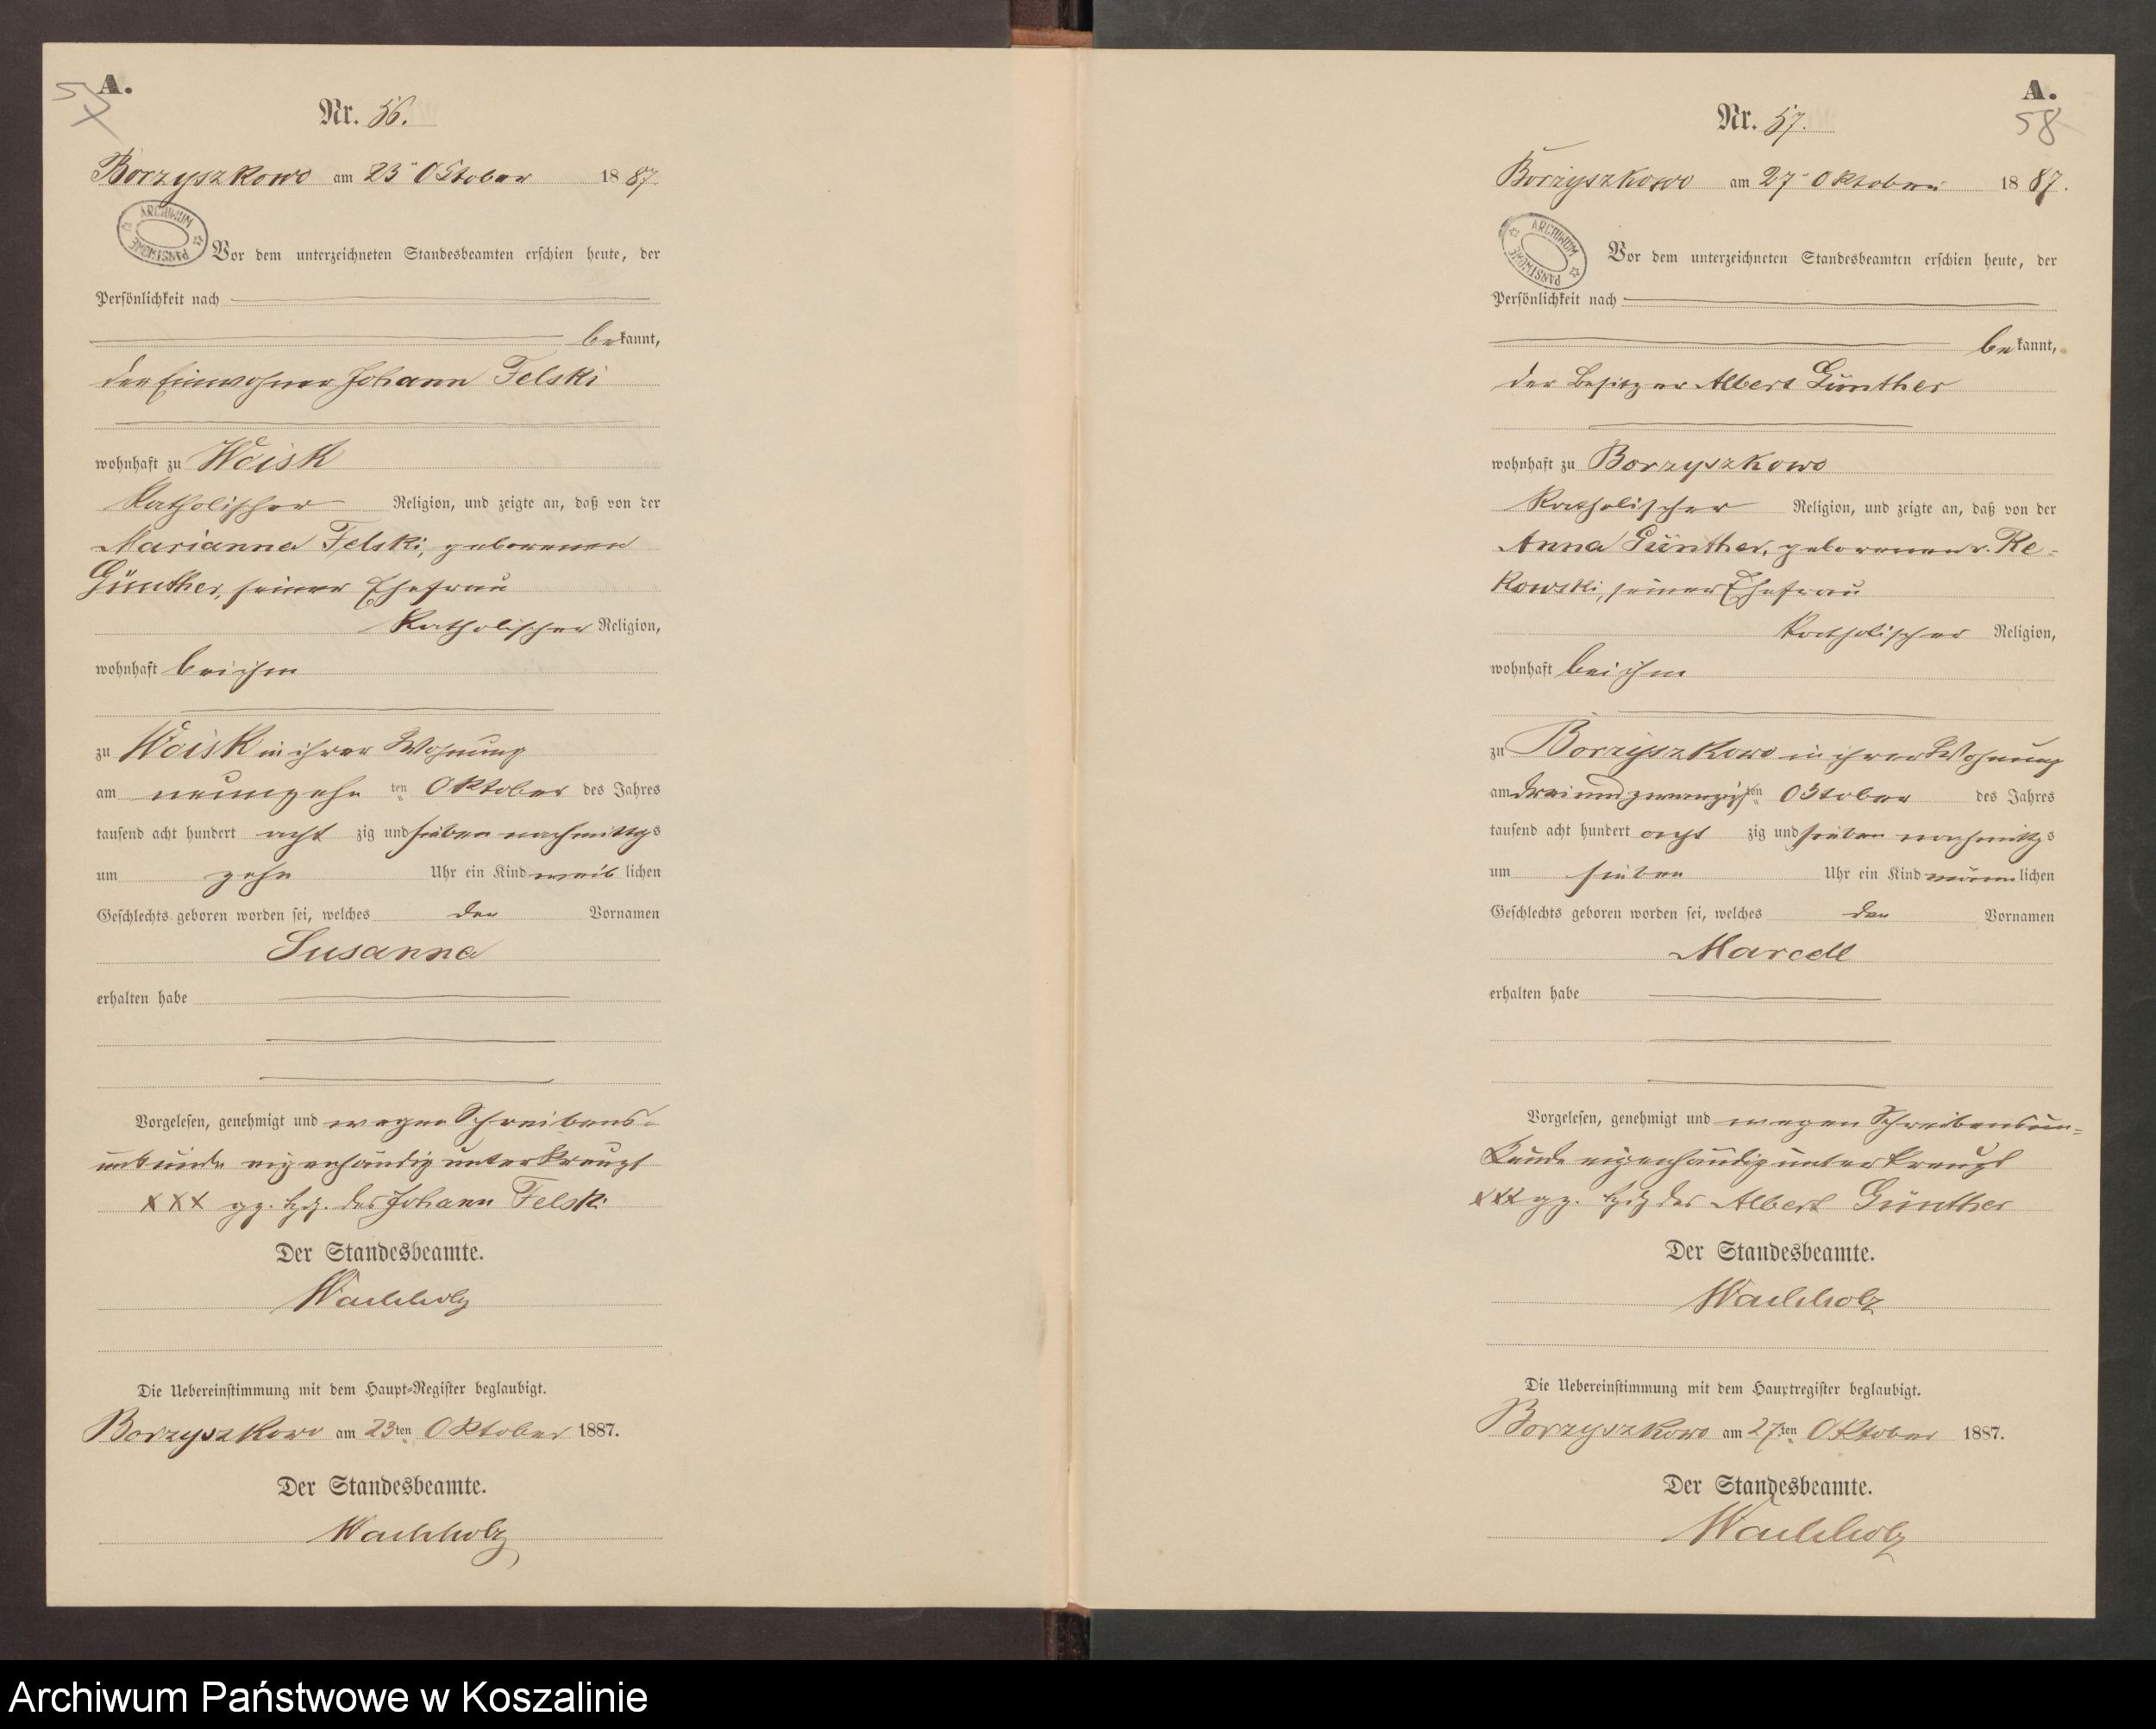 A.
Nr. 56.
Borzyszkowo am 23 Oktober 1887.
ARCHIWUM PAŃSTWOWE
Vor dem unterzeichneten Standesbeamten erschien heute, der
Persönlichkeit nach
bekannt,
der Einwohner Johann Felski
wohnhaft zu Woisk
katholischer Religion, und zeigte an, daß von der
Marianna Felski, geborenen
Günther, seiner Ehefrau
katholischer Religion,
wohnhaft bei ihm
zu Woisk in ihrer Wohnung
am neunzehnten Oktober des Jahres
tausend acht hundert achtzig und sieben nachmittgs
um zehn Uhr ein Kind weiblichen
Geschlechts geboren worden sei, welches den Vornamen
Susanna
erhalten habe
Vorgelesen, genehmigt und wegen Schreibens-
unkunde eigenhändig unterkreuzt
XXX gz. Hdz. des Johann Felski
Der Standesbeamte.
Wachholz
Die Uebereinstimmung mit dem Haupt-Register beglaubigt.
Borzyszkowo am 23ten Oktober 1887.
Der Standesbeamte.
Wachholz
A.
58
Nr. 57.
Borzyszkowo am 27 Oktober 1887.
ARCHIWUM PAŃSTWOWE
Vor dem unterzeichneten Standesbeamten erschien heute, der
Persönlichkeit nach
bekannt,
der Besitzer Albert Günther
wohnhaft zu Borzyszkowo
katholischer Religion, und zeigte an, daß von der
Anna Günther, geborenen v. Re-
kowski, seiner Ehefrau
katholischer Religion,
wohnhaft bei ihm
zu Borzyszkowo in ihrer Wohnung
am dreiundzwanzigsten Oktober des Jahres
tausend acht hundert achtzig und sieben nachmittgs
um sieben Uhr ein Kind männlichen
Geschlechts geboren worden sei, welches den Vornamen
Marcell
erhalten habe
Vorgelesen, genehmigt und wegen Schreibensun=
kunde eigenhändig unterkreuzt
XXX gz. Hdz des Albert Günther
Der Standesbeamte.
Wachholz
Die Uebereinstimmung mit dem Hauptregister beglaubigt.
Borzyszkowo am 27ten Oktober 1887.
Der Standesbeamte.
Wachholz
Archiwum Państwowe w Koszalinie